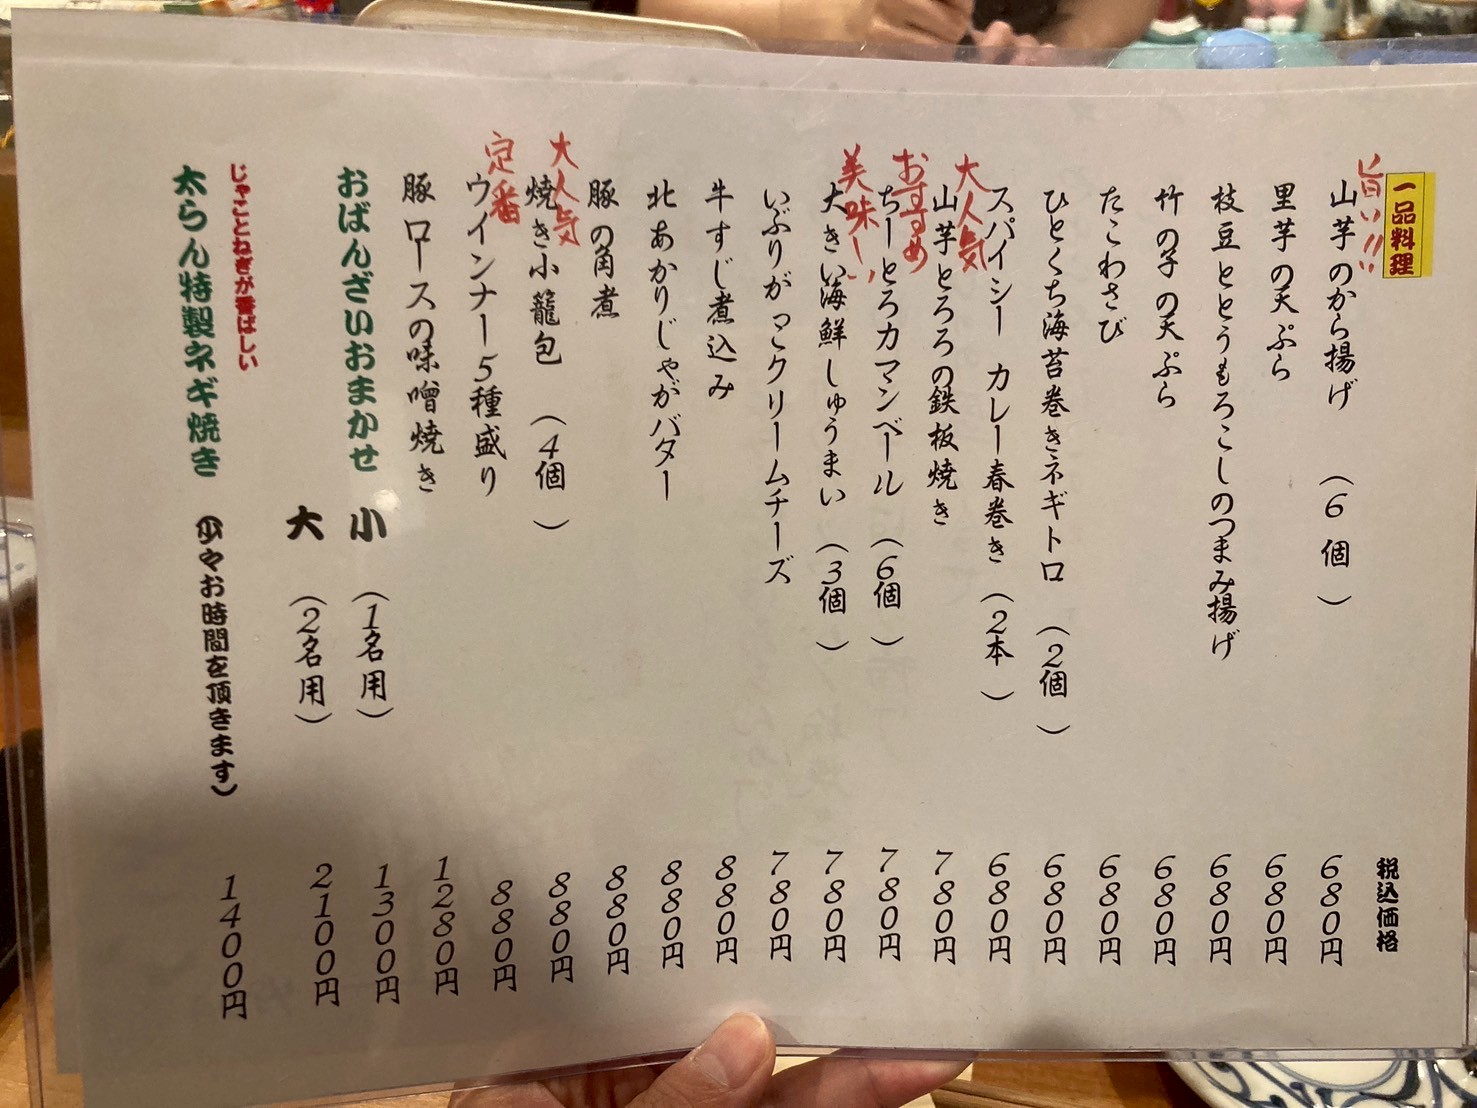 一品料理
税込価格
旨い!!!
山芋のから揚げ (6個) 680円
里芋の天ぷら 680円
枝豆ととうもろこしのつまみ揚げ 680円
竹の子の天ぷら 680円
たこわさび 680円
ひとくち海苔巻きネギトロ (2個) 680円
スパイシー カレー春巻き (2本) 680円
大人気
山芋とろろの鉄板焼き 780円
おすすめ
ちーとろカマンベール (6個) 780円
美味しい
大きい海鮮しゅうまい (3個) 780円
いぶりがっこクリームチーズ 780円
牛すじ煮込み 880円
北あかりじゃがバター 880円
豚の角煮 880円
大人気
焼き小籠包 (4個) 880円
定番
ウインナー5種盛り 880円
豚ロースの味噌焼き 1280円
おばんざいおまかせ 小 (1名用) 1300円
大 (2名用) 2100円
じゃことねぎが香ばしい
太らん特製ネギ焼き (少々お時間を頂きます) 1400円